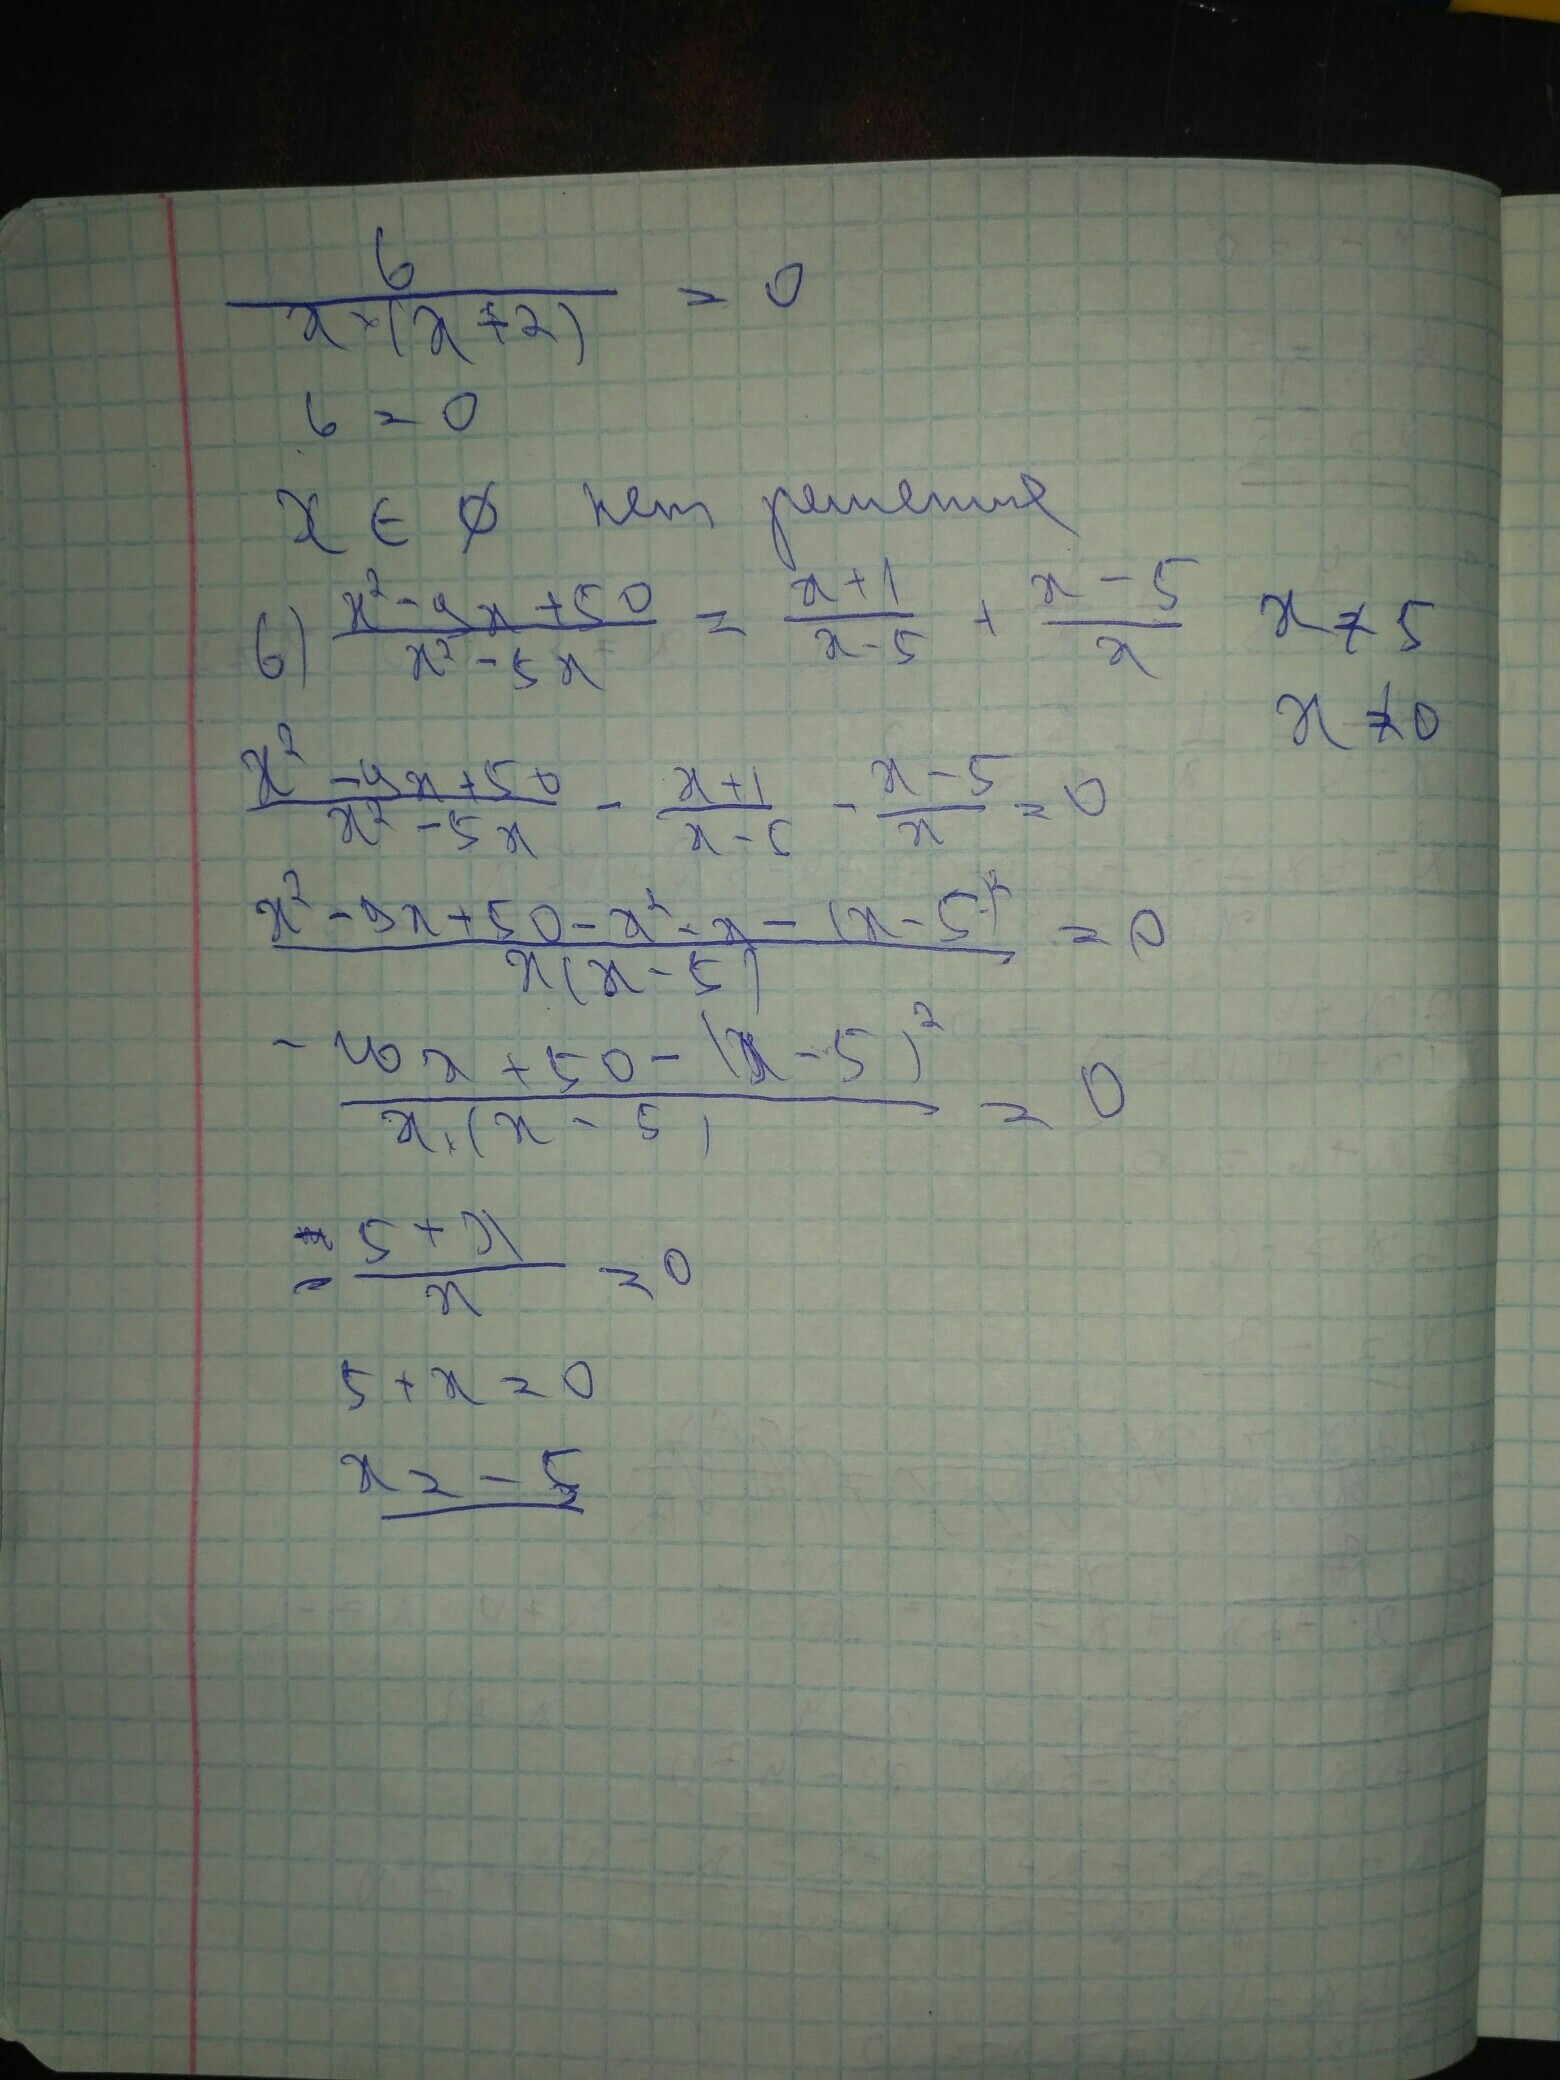 6 / x·(x+2) = 0
6 = 0
x ∈ ∅ нет решения
6) x²-9x+50 / x²-5x = x+1 / x-5 + x-5 / x x≠5
x≠0
x²-9x+50 / x²-5x - x+1 / x-5 - x-5 / x = 0
x²-9x+50-x²-x-(x-5)² / x(x-5) = 0
-10x+50-(x-5)² / x·(x-5) = 0
- 5+x / x = 0
5+x=0
x=-5